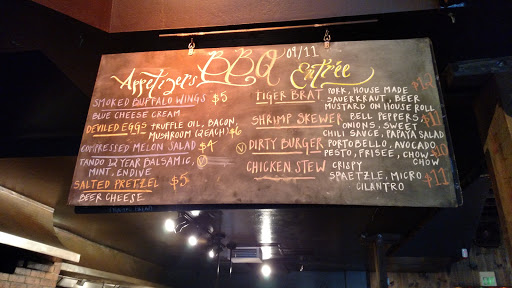 BBQ 09/11
Appetizers
SMOKED BUFFALO WINGS $5
BLUE CHEESE CREAM
DEVILED EGGS TRUFFLE OIL, BACON,
MUSHROOM (2EACH) $6
COMPRESSED MELON SALAD $4
TANDO 12 YEAR BALSAMIC, V
MINT, ENDIVE
SALTED PRETZEL $5
BEER CHEESE
Entrée
TIGER BRAT PORK, HOUSE MADE
SAUERKRAUT, BEER
MUSTARD ON HOUSE ROLL
SHRIMP SKEWER BELL PEPPERS $11
ONIONS, SWEET
CHILI SAUCE, PAPAYA SALAD
V DIRTY BURGER PORTOBELLO, AVOCADO,
PESTO, FRISEE, CHOW CHOW
CHICKEN STEW CRISPY
SPAETZLE, MICRO $11
CILANTRO